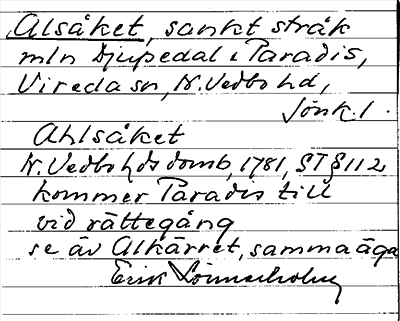 Alsåket, sankt stråk
mln Djupedal i Paradis,
Vireda sn, N. Vedbo hd,
Jönk. l.
Ahlsåket
N. Vedbo hds domb, 1781, ST § 112
kommer Paradis till
vid rättegång
se äv Alkärret, samma äga
Erik Lönnerholm